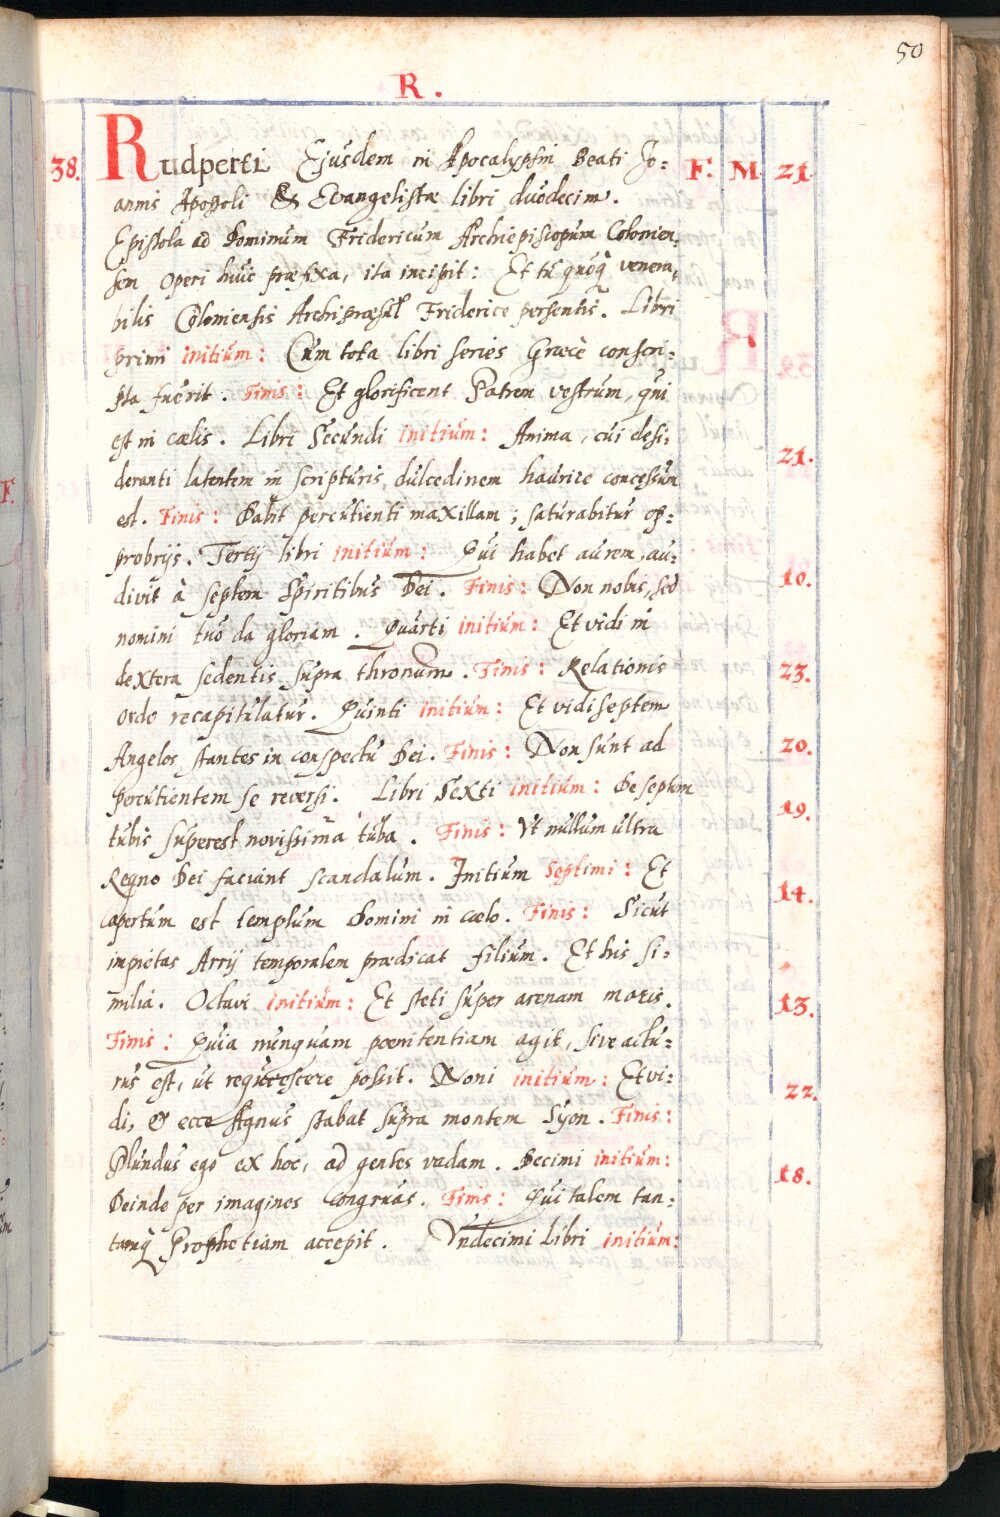 50
R.
38. Rudperti Ejusdem in Apocalypsin Beati Jo: F. M. 21.
annis Apostoli & Evangelistæ libri duodecim.
Epistola ad Dominum Fridericum Archiepiscopum Colonien,
sem operi huic præfixa, ita incipit: Et tu quoq̃ venera,
bilis Coloniensis Archipræsul Friderice persentis. Libri
primi initium: Cum tota libri series Græcè conscri:
pta fuerit. Finis: Et glorificent Patrem vestrum, qui
est in cælis. Libri Secundi initium: Anima, cui desi: 21.
deranti latentem in scripturis dulcedinem haurire concessum
est. Finis: Dabit percutienti maxillam; saturabitur op:
probrijs. Tertij libri initium: Qui habet aurem, au: 10.
divit à septem Spiritibus Dei. Finis: Non nobis, sed
nomini tuo da gloriam. Quarti initium: Et vidi in
dextera sedentis supra thronum. Finis: Relationis 23.
ordo recapitulatur. Quinti initium: Et vidi septem
Angelos stantes in conspectu Dei. Finis: Non sunt ad 20.
percutientem se reversi. Libri Sexti initium: De septem
tubis superest novissima tuba. Finis: Vt nullum ultra 19.
Regno Dei faciant scandalum. Initium Septimi: Et
apertum est templum Domini in cælo. Finis: Sicut 14.
impietas Arrij temporalem prædicat filium. Et his si:
milia. Octavi initium: Et steti super arenam maris. 13.
Finis: Quia nunquam pœnitentiam agit, sive actu:
rus est, ut requiescere possit. Noni initium: Et vi: 22.
di, & ecce Agnus stabat supra montem Syon. Finis:
Mundus ego ex hoc, ad gentes vadam. Decimi initium: 18.
Deinde per imagines congruas. Finis: Qui talem tan:
tamq̃ Prophetiam accepit. Vndecimi libri initium: